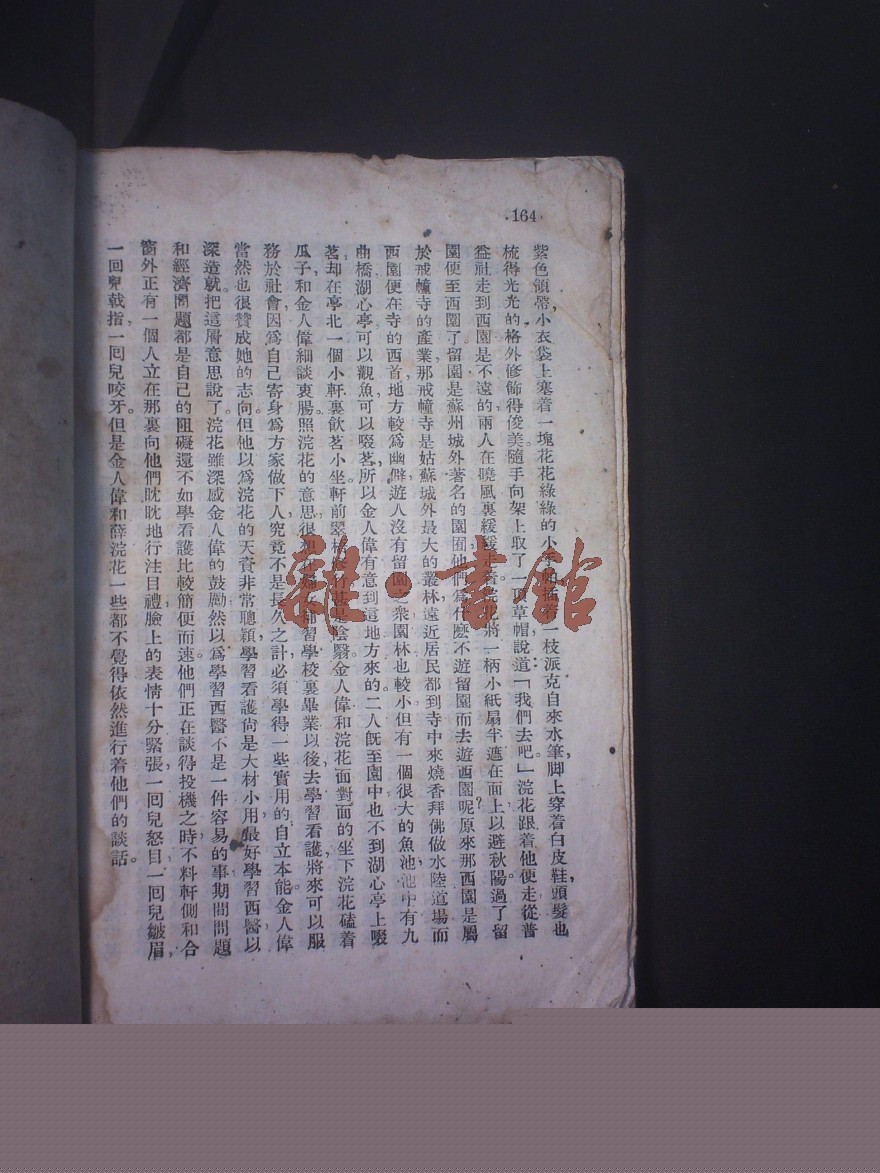 ·164·
紫色領帶，小衣袋上塞着一塊花花綠綠的小手帕，插着一枝派克自來水筆，脚上穿着白皮鞋，頭髮也
梳得光光的，格外修飾得俊美。隨手向架上取了一頂草帽，說道：「我們去吧。」浣花跟着他便走。從普
益社走到西園是不遠的，兩人在曉風裏緩緩走着，浣花將一柄小紙扇半遮在面上，以避秋陽。過了留
園，便至西園了。留園是蘇州城外著名的園囿，他們爲什麽不遊留園而去遊西園呢？原來那西園是屬
於戒幢寺的產業，那戒幢寺是姑蘇城外最大的叢林，遠近居民都到寺中來燒香拜佛，做水陸道場。而
西園便在寺的西首，地方較爲幽僻，遊人沒有留園之衆，園林也較小，但有一個很大的魚池，池中有九
曲橋、湖心亭，可以觀魚，可以啜茗。所以金人偉有意到這地方來的。二人既至園中，也不到湖心亭上啜
茗，却在亭北一個小軒裏飲茗小坐。軒前翠梧修竹，甚是陰翳。金人偉和浣花面對面的坐下，浣花磕着
瓜子，和金人偉細談衷腸。照浣花的意思，很想在婦女補習學校裏畢業以後，去學習看護，將來可以服
務於社會，因爲自己寄身爲方家做下人，究竟不是長久之計，必須學得一些實用的自立本能。金人偉
當然也很贊成她的志向。但他以爲浣花的天資非常聰穎，學習看護尙是大材小用，最好學習西醫，以
深造就，把這層意思說了。浣花雖深感金人偉的鼓勵，然以爲學習西醫不是一件容易的事，期間問題
和經濟問題都是自己的阻礙，還不如學看護比較簡便而速。他們正在談得投機之時，不料軒側和合
窗外正有一個人立在那裏，向他們眈眈地行注目禮，臉上的表情十分緊張，一回兒怒目，一回兒皺眉，
一回兒戟指，一回兒咬牙。但是金人偉和薛浣花一些都不覺得，依然進行着他們的談話。
雜·書館